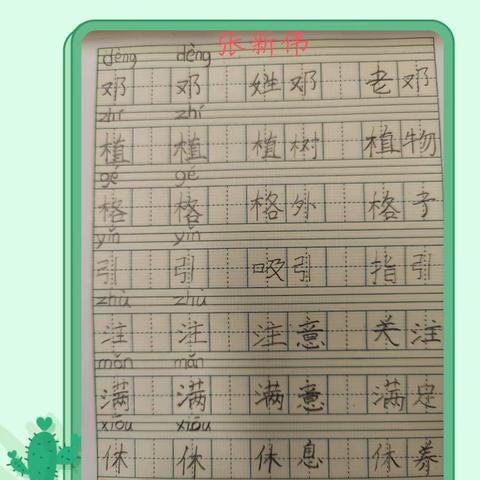 张新伟
dèng dèng
邓 邓 姓邓 老邓
zhí zhí
植 植 植树 植物
gé gé
格 格 格外 格子
yǐn yǐn
引 引 吸引 指引
zhù zhù
注 注 注意 关注
mǎn mǎn
满 满 满意 满足
xiōu xiōu
休 休 休息 休养